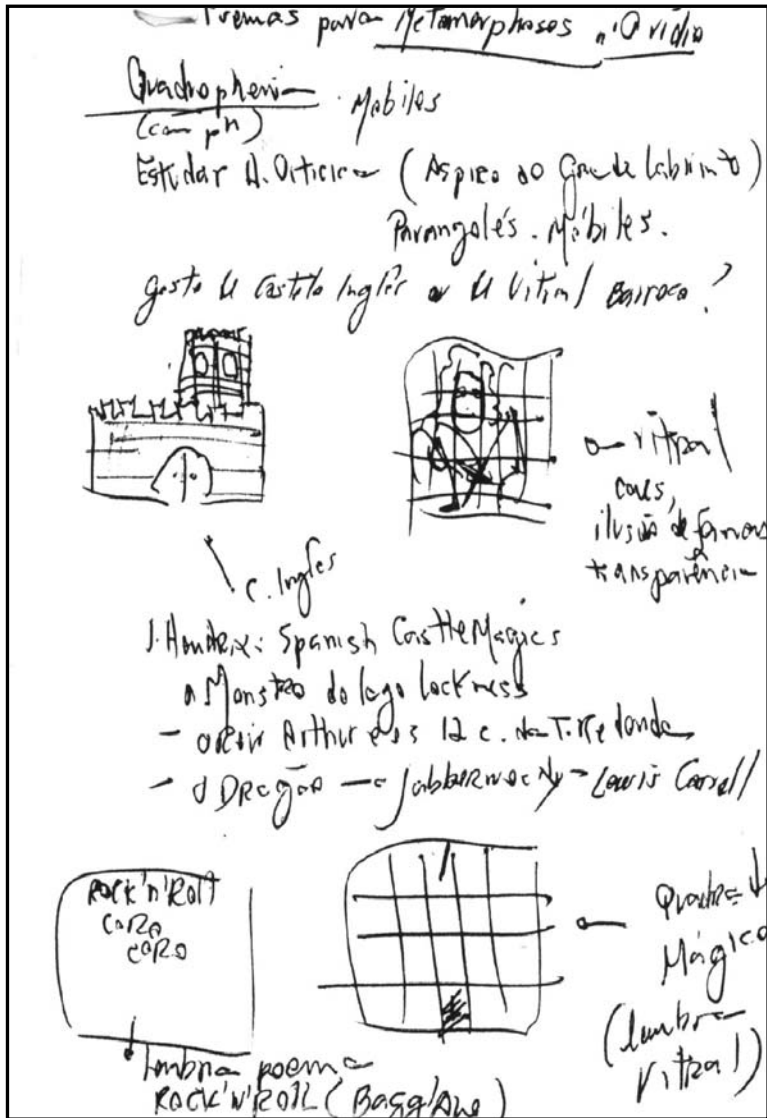 Poemas para Metamorphoses d'Ovidio
Quadrophenia . Mobiles
(com ph)
Estudar H. Oiticica (Aspiro ao Grande Labirinto)
Parangolés . Móbiles.
gosto de Castelo Inglês ou de Vitral Barroco?
vitral
cores,
ilusão de formas
transparência
c. Inglês
J. Hendrix: Spanish Castle Magics
o Monstro do lago lockness
- o Rei Arthur e os 12 c. da T. Redonda
- o Dragão - Jabberwocky - Lewis Carroll
ROCK'n'Roll
CORO
CORO
Quadrado
Mágico
(lembra
Vitral)
lembra poema
ROCK'N'ROLL (